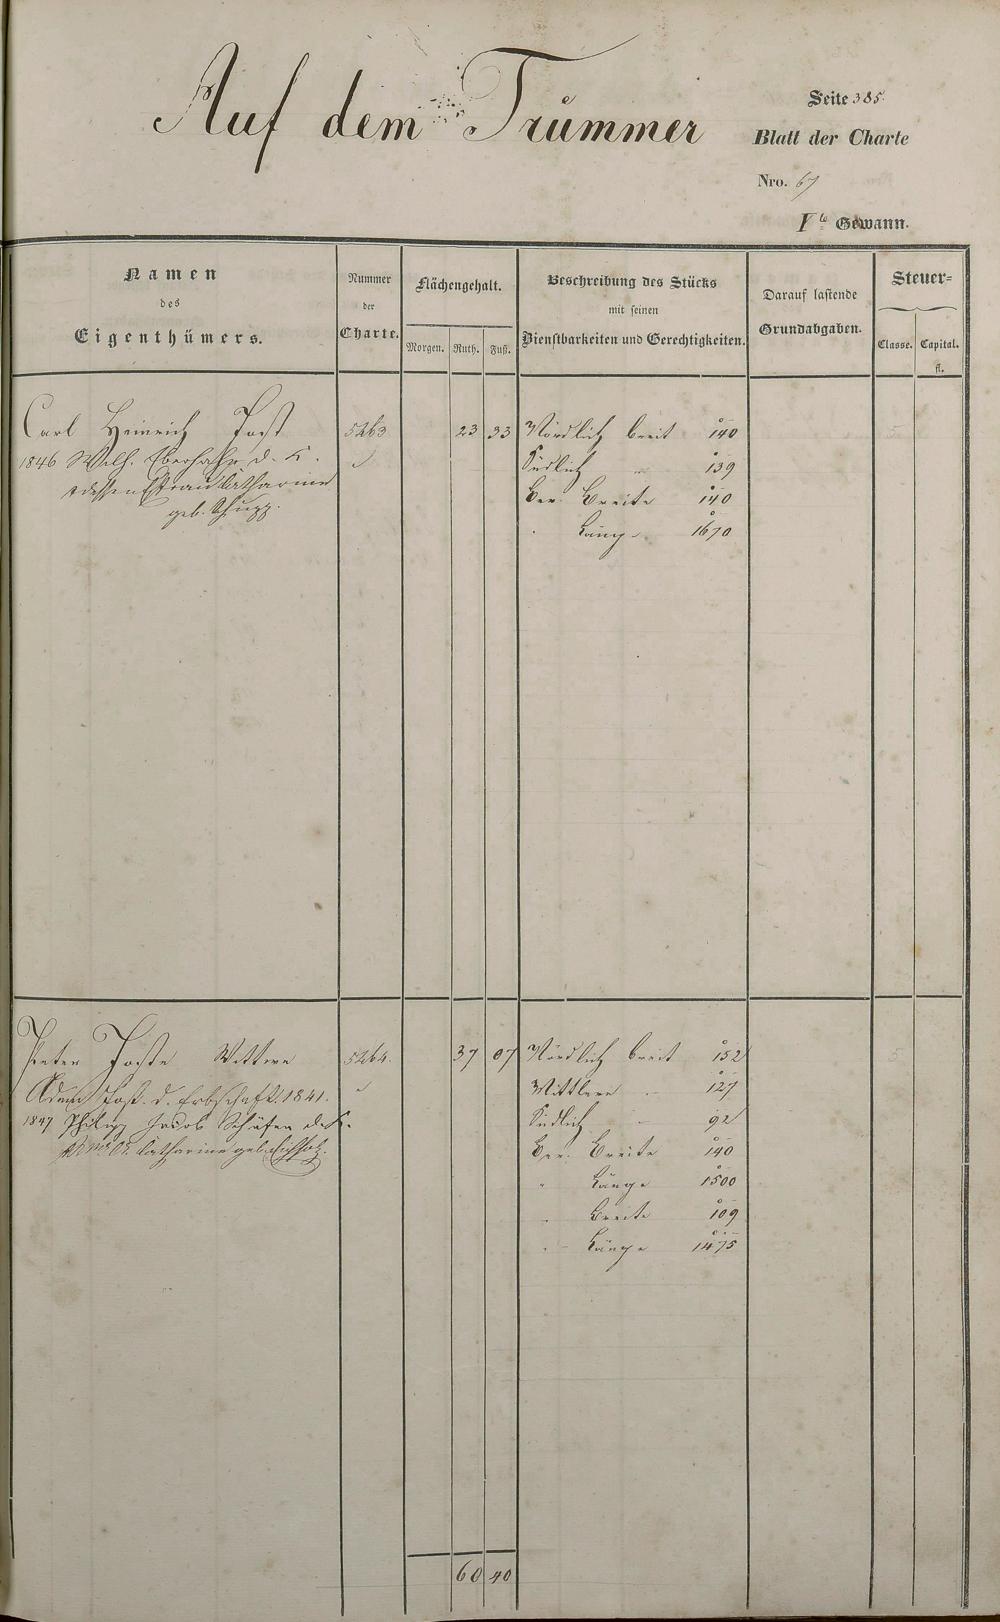 Auf dem Trümmer
Seite 385.
Blatt der Charte
Nro. 67
Vte Gewann.
Namen
des
Eigenthümers.
Nummer
der
Charte.
Flächengehalt.
Morgen. Ruth. Fuß.
Beschreibung des Stücks
mit seinen
Dienstbarkeiten und Gerechtigkeiten.
Darauf lastende
Grundabgaben.
Steuer-
Classe. Capital.
fl.
Carl Heinrich Jost 5263 23 33 Nördlich breit 140 5
1846 Wilh. Eberhahn d. K. Südlich " 139
dessen Ehefrau Catharine Ber. Breite 140
geb. Schupp. " Länge 1670
Peter Joste Wittwe 5264. 37 07 Nördlich breit 152 5
Adam Jost. d. Erbschaft. 1841. Mittlere " 127
1847 Philipp Jacob Schäfer d. K. Südlich " 92
Catharine geb. Ber. Breite 140
" Länge 1500
" Breite 109
" Länge 1475
60 40